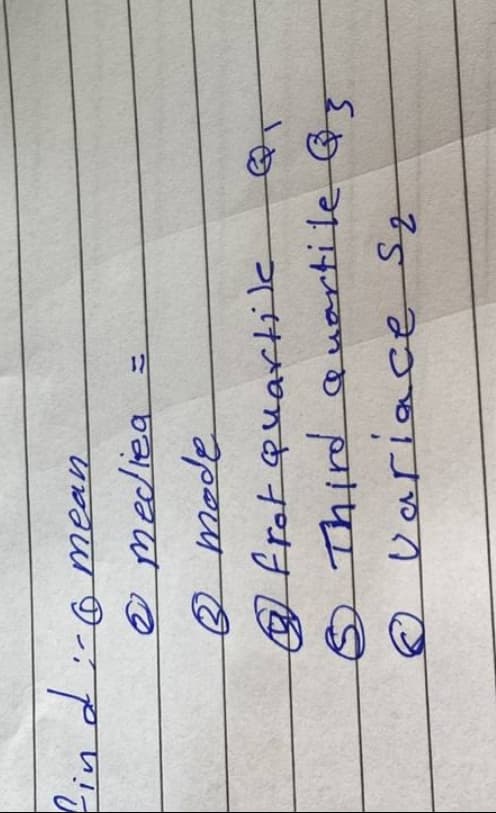 find :- ① mean
② mediea =
③ mode
④ frot quartile Q1
⑤ Third quartile Q3
⑥ variace S2